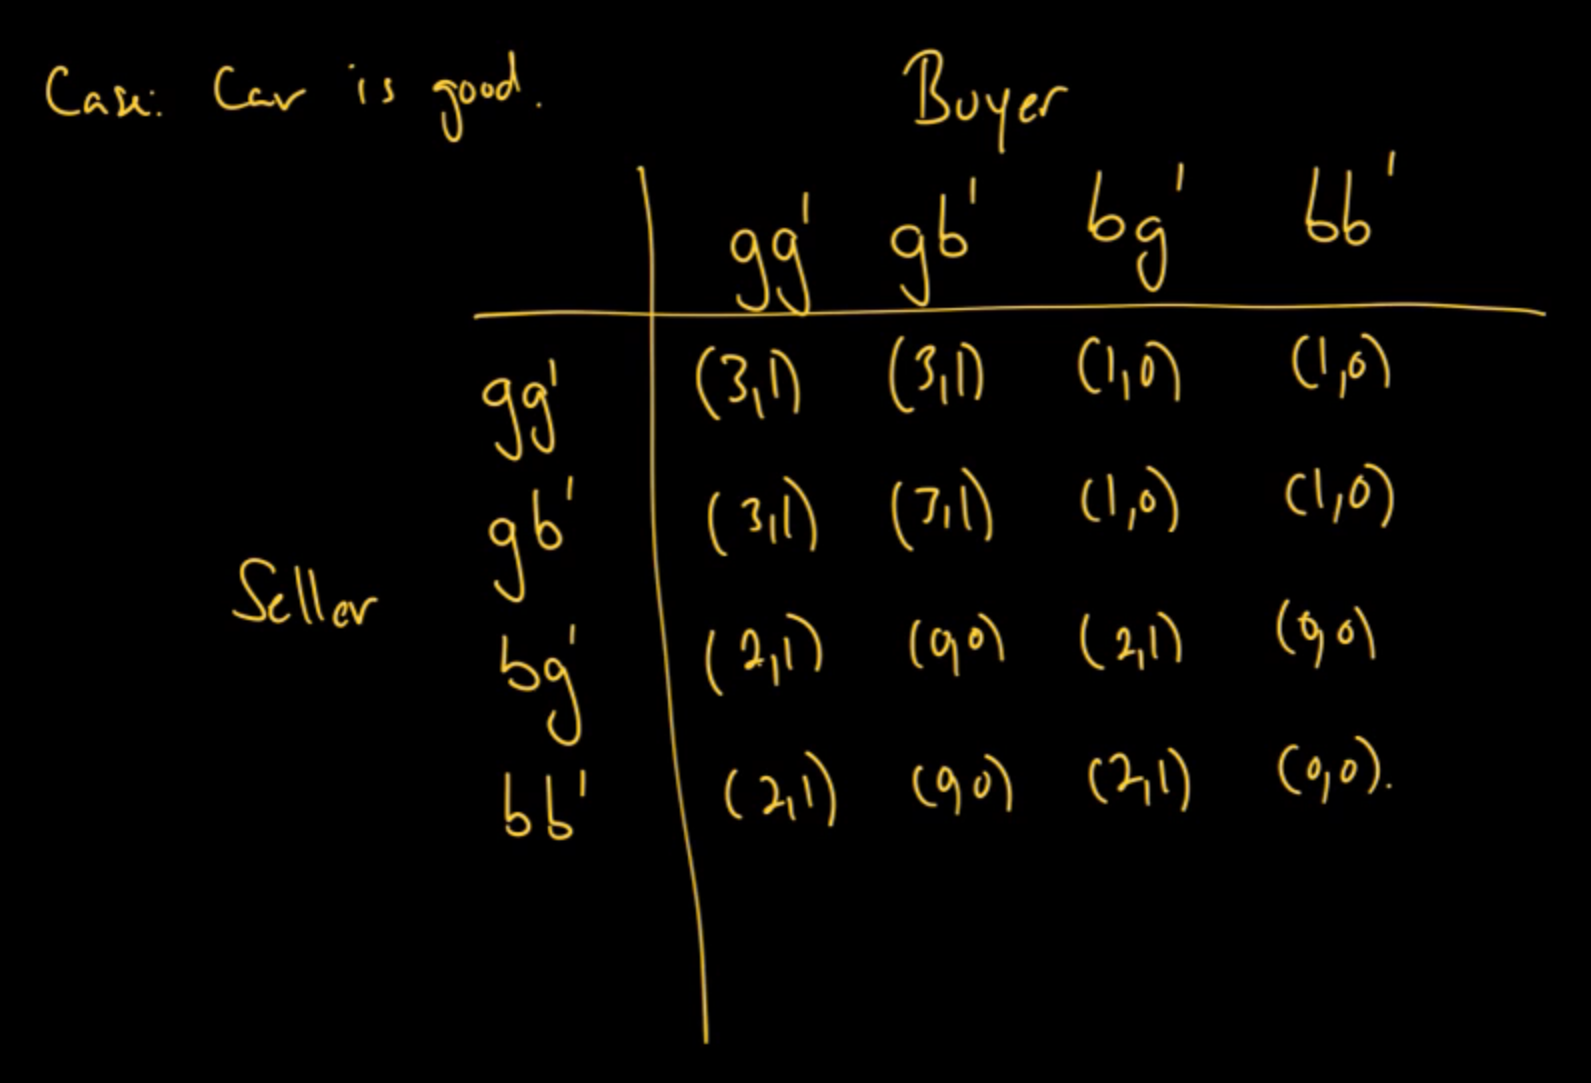 Case: Car is good.
Buyer
gg' gb' bg' bb'
gg' (3,1) (3,1) (1,0) (1,0)
gb' (3,1) (3,1) (1,0) (1,0)
Seller
bg' (2,1) (0,0) (2,1) (0,0)
bb' (2,1) (0,0) (2,1) (0,0).